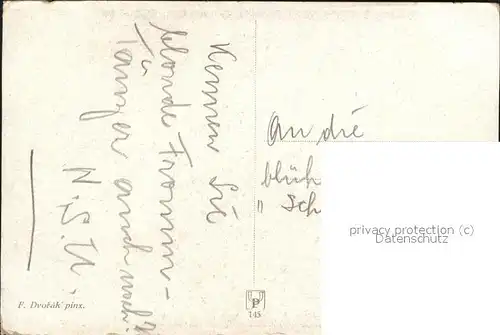 Kennen Sie
blonde Fromm-
Tänzer auch noch?
N.S.U.
An die
blüh
" Sch
privacy protection (c)
Datenschutz
F. Dvořák pinx.
P
145